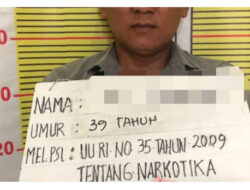 NAMA :
UMUR : 39 TAHUN
MEL.PSL : UU RI NO 35 TAHUN 2009
TENTANG NARKOTIKA